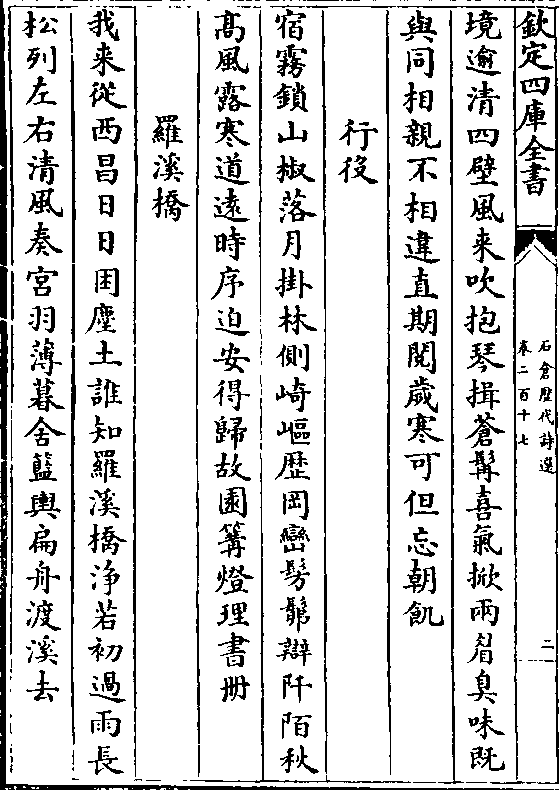 欽定四庫全書
石倉歴代詩選
卷二百十七
二
境逾清四壁風来吹抱琴揖蒼髯喜氣掀兩眉臭味既
與同相親不相違直期閱歲寒可但忘朝飢
行役
宿霧鎖山椒落月掛林側崎嶇歴岡巒髣髴辯阡陌秋
髙風露寒道遠時序迫安得歸故園篝燈理書册
羅溪橋
我来從西昌日日困塵土誰知羅溪橋浄若初過雨長
松列左右清風奏宮羽薄暮舍籃輿扁舟渡溪去